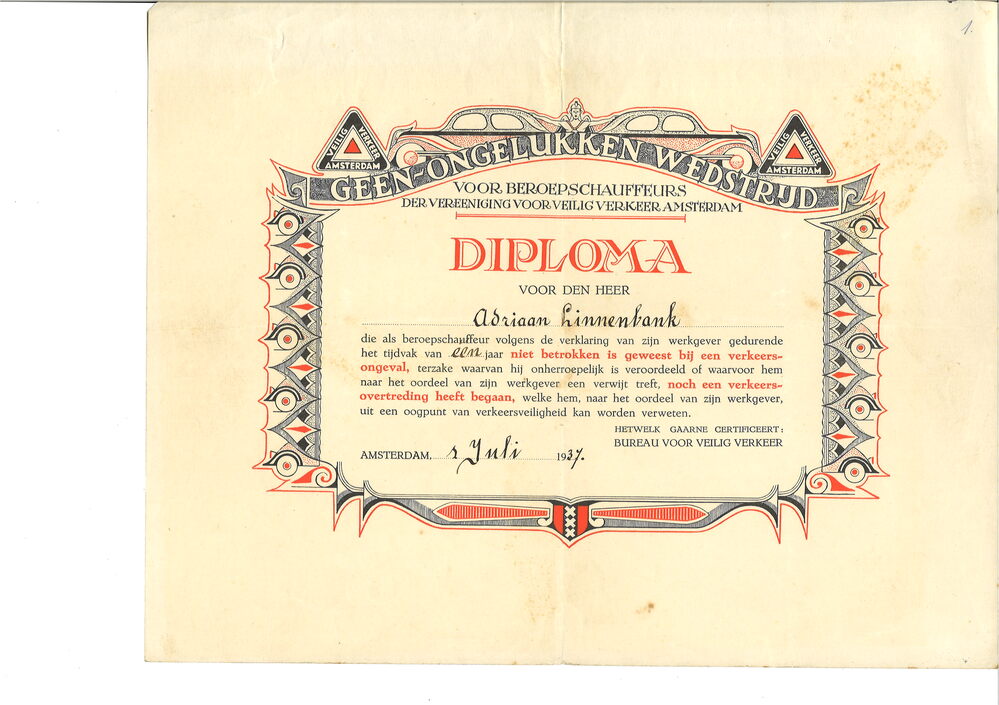 1.
VEILIG VERKEER AMSTERDAM
VEILIG VERKEER AMSTERDAM
GEEN-ONGELUKKEN WEDSTRIJD
VOOR BEROEPSCHAUFFEURS
DER VEREENIGING VOOR VEILIG VERKEER AMSTERDAM
DIPLOMA
VOOR DEN HEER
Adriaan Linnenbank
die als beroepschauffeur volgens de verklaring van zijn werkgever gedurende
het tijdvak van een jaar niet betrokken is geweest bij een verkeers-
ongeval, terzake waarvan hij onherroepelijk is veroordeeld of waarvoor hem
naar het oordeel van zijn werkgever een verwijt treft, noch een verkeers-
overtreding heeft begaan, welke hem, naar het oordeel van zijn werkgever,
uit een oogpunt van verkeersveiligheid kan worden verweten.
HETWELK GAARNE CERTIFICEERT:
BUREAU VOOR VEILIG VERKEER
AMSTERDAM, 1 Juli 1937.